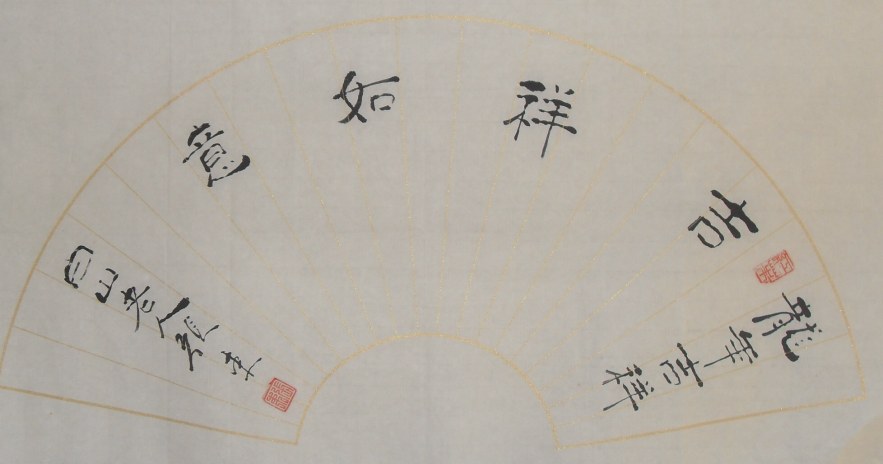 龍年吉祥
吉祥如意
白山老人張